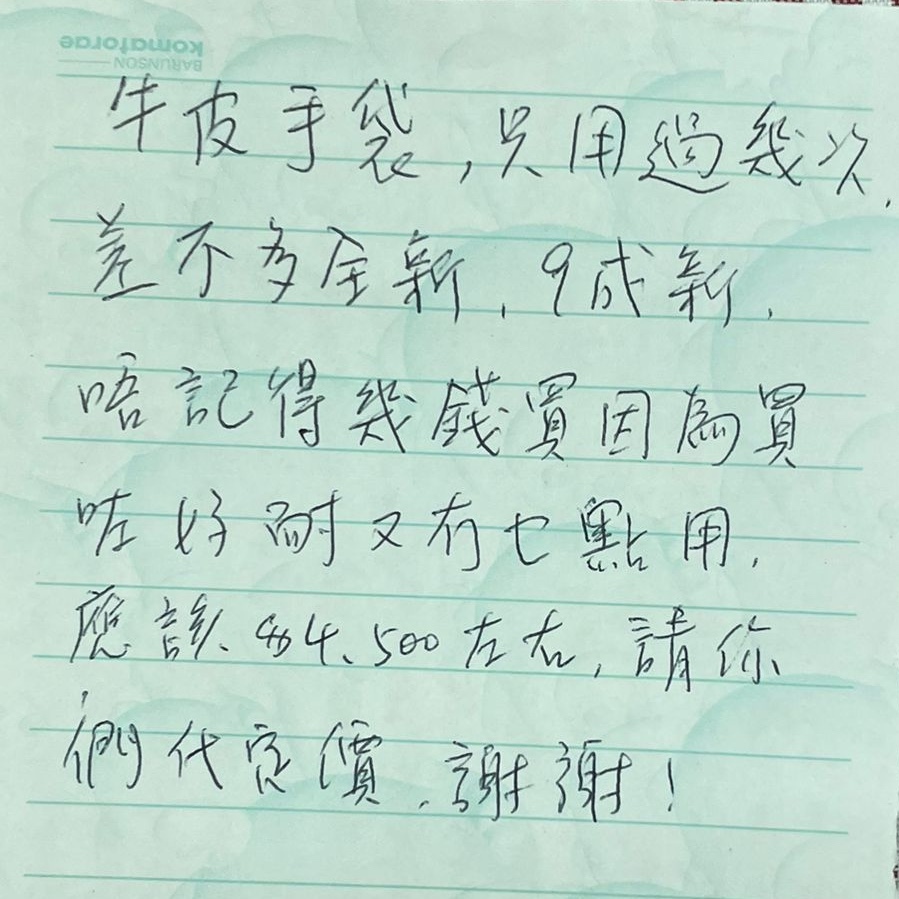 komatorae
BARUNSON
牛皮手袋,只用過幾次,
差不多全新,9成新,
唔記得幾錢買因為買
咗好耐又冇乜點用,
應該、$4,500左右,請你
們代定價,謝謝!